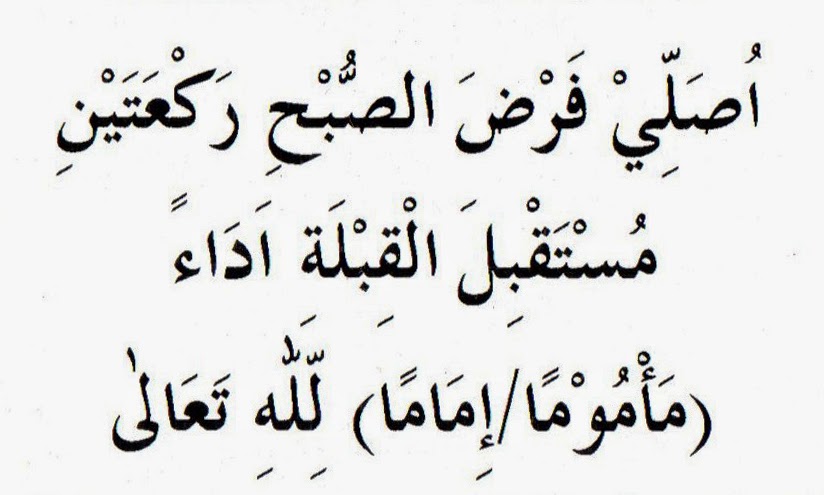 اُصَلِّيْ فَرْضَ الصُّبْحِ رَكْعَتَيْنِ
مُسْتَقْبِلَ الْقِبْلَةِ اَدَاءً
(مَأْمُوْمًا/إِمَامًا) لِّلّٰهِ تَعَالٰى